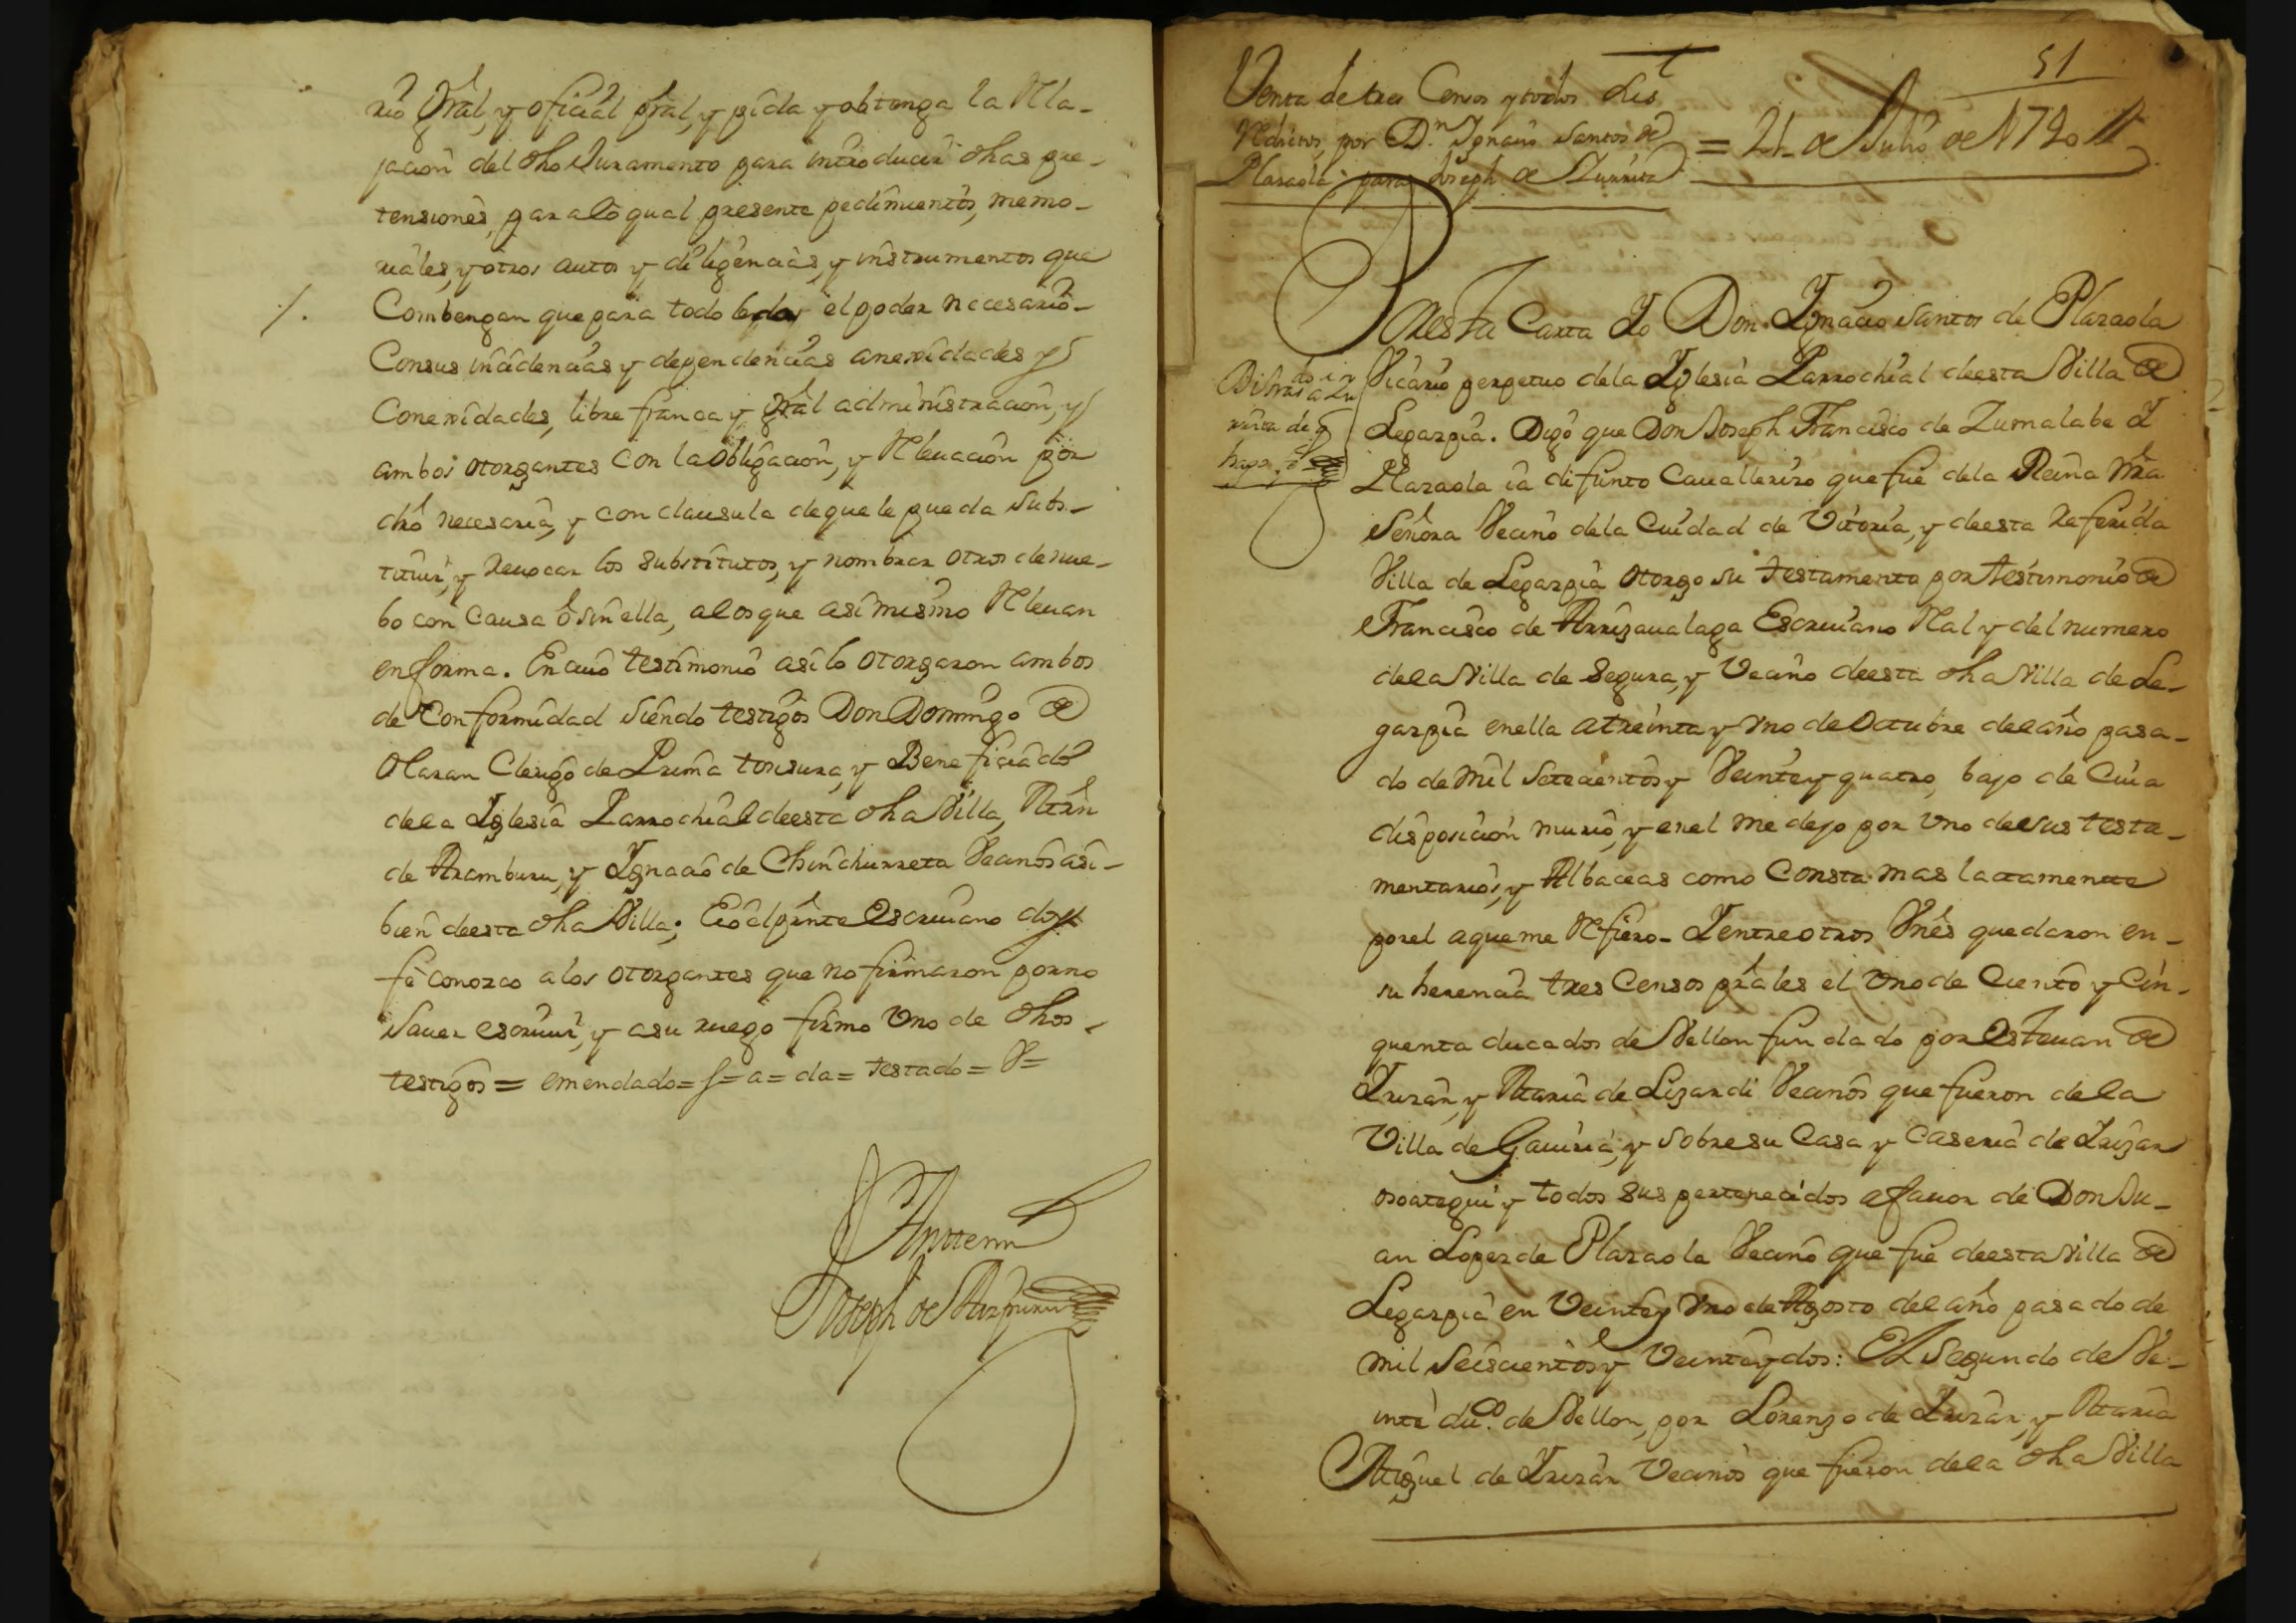 rio gral, y oficial gral, y pida y obtenga la Rela-
jacion del dho Juramento para introducir dhas pre-
tensiones, para lo qual presente pedimientos, memo-
riales, y otros autos y diligencias, y instrumentos que
Combengan que para todo le da el poder necesario
Consus incidencias y dependencias anexidades y
Conexidades, libre franca y gral administracion, y
ambos otorgantes con la obligacion, y Releuacion por
dro necesaria, y con clausula de que le pueda Subs-
tituir, y reuocar los substitutos, y nombrar otros de nue-
bo con Causa o sin ella, a los que asimismo Releuan
en forma. En cuio testimonio asi lo otorgaron ambos
de Conformidad siendo testigos Don Domingo de
Olaran Clerigo de Prima tonsura, y Beneficiado
dela Iglesia Parrochial deesta dha Villa, Mrn
de Aramburu, y Ignacio de Chinchurreta Vecinos asi-
bien deesta dha Villa; E io el pnte Escriuano doy
fe conozco a los otorgantes que no firmaron por no
Sauer escriuir, y a su ruego firmo Vno de dhos
testigos = emendado = s = a = da = testado = V =
Antte mi
Joseph de Aizpuru
51
Venta de tres Censos y todos sus
Reditos, por Dn. Ignacio Santos de
Plazaola para Joseph de Zurrita
= 21 de Julio de 1720
Por esta Carta Yo Don Ygnacio Santos de Plazaola
Vicario perpetuo dela Iglesia Parrochial deesta Villa de
Legazpia. Digo que Don Joseph Francisco de Zumalabe Y
Plazaola ia difunto Cauallerizo que fue dela Reina nra
Señora Vecino dela Ciudad de Vitoria, y deesta referida
Villa de Legazpia otorgo su testamento por testimonio de
Francisco de Arrizaualaga Escriuano Real y del numero
dela Villa de Segura, y Vecino deesta dha Villa de Le-
gazpia en ella a treinta y Vno de Octubre del año pasa-
do de Mil Setecientos y Veinte y quatro, bajo de Cuia
disposicion murio, y en el me dejo por Vno de sus testa-
mentarios, y Albaceas como Consta mas lactamentte
por el a que me Refiero - Y entre otros Vnes quedaron en
su herencia tres Censos prales el Vno de Ciento y Cin-
quenta ducados de Vellon fundado por Esteuan de
Irizar, y Maria de Lizardi Vecinos que fueron de la
Villa de Gauiria, y Sobre su Casa y Caseria de Irizar
osoategui y todos sus pertenecidos a fauor de Don Ju-
an Lopez de Plazaola Vecino que fue deesta Villa de
Legazpia en Veinte y Vno de Agosto del año pasado de
mil Seiscientos y Veinte y dos: El Segundo de Ve-
inte duos. de Vellon, por Lorenzo de Irizar, y Maria
Miguel de Irizar Vecinos que fueron dela dha Villa